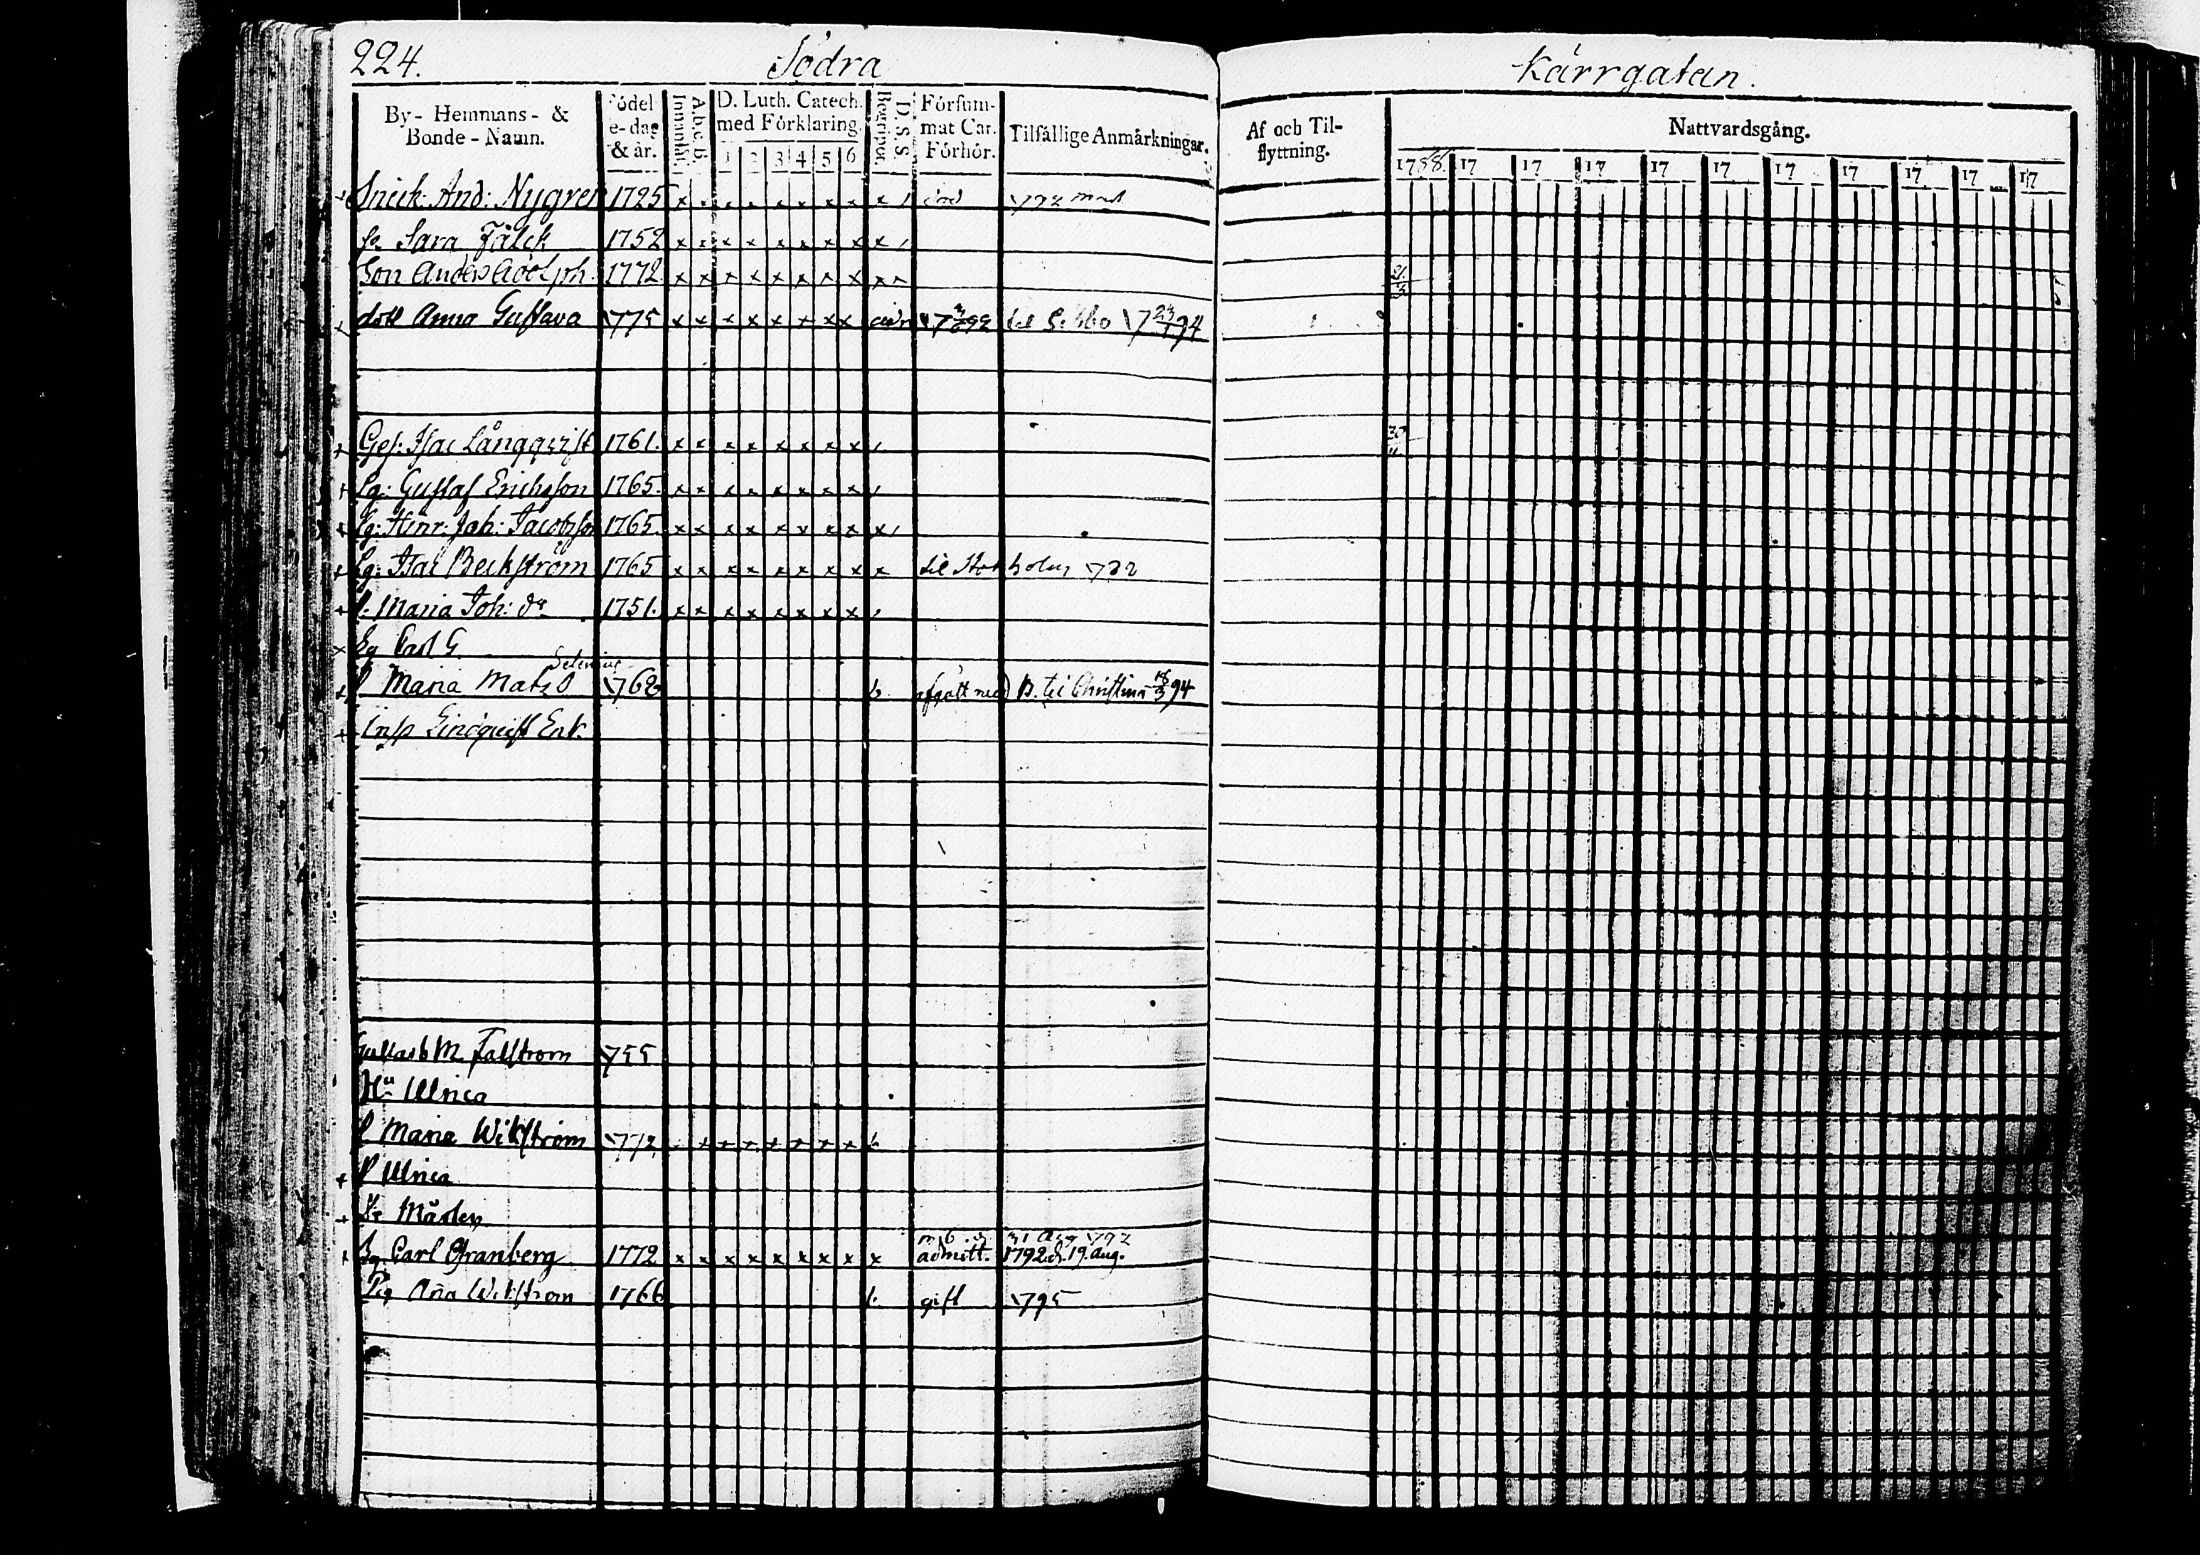 224. Södra Kärrgatan.
By- Hemmans- & Bonde-Namn.
Födel e-dag & år.
Innanläs.
A.b.c.b.
D. Luth. Catech. med Förklaring.
1 2 3 4 5 6
Begreppet
D. S. S.
Försum- mat Cat. Förhör.
Tilfällige Anmärkningar.
Af och Til- flyttning.
Nattvardsgång.
1788 17 17 17 17 17 17 17 17 17 17
Snick. And: Nygren 1725 x x x x x x x x x
Sara Fálck 1752 x x x x x x x x x
Son Anders Adolph. 1772. x x x x x x x x x x 21/3
dott Anna Gustava 1775 x x x x x x x x til 1794
Ges: Isac Långqvist 1761. x x x x x x x x 30
Lg: Gustaf Erichsson 1765. x x x x x x x x
Lg: Hinr: Joh: Jacobsson 1765. x x x x x x x x x
Lg: Isac Beckström 1765 x x x x x x x x x til Stockholm
P. Maria Joh: dr 1751. x x x x x x x x
Lg Carl G Selenius
P Maria Mats D 1762 b afgått med B. til Christina 94
Insp Lindqvist Enk.
M. Falström 1755
Hu Ulrica
P Maria Wikström 1772 x x x x x x x b
P Ulrica
Mårten
31 Aug 1792
Lg Carl Granberg 1772 x x x x x x x x x admitt. 1792 d. 19. Aug.
Pig Aña Wikström 1766 b. gift 1795